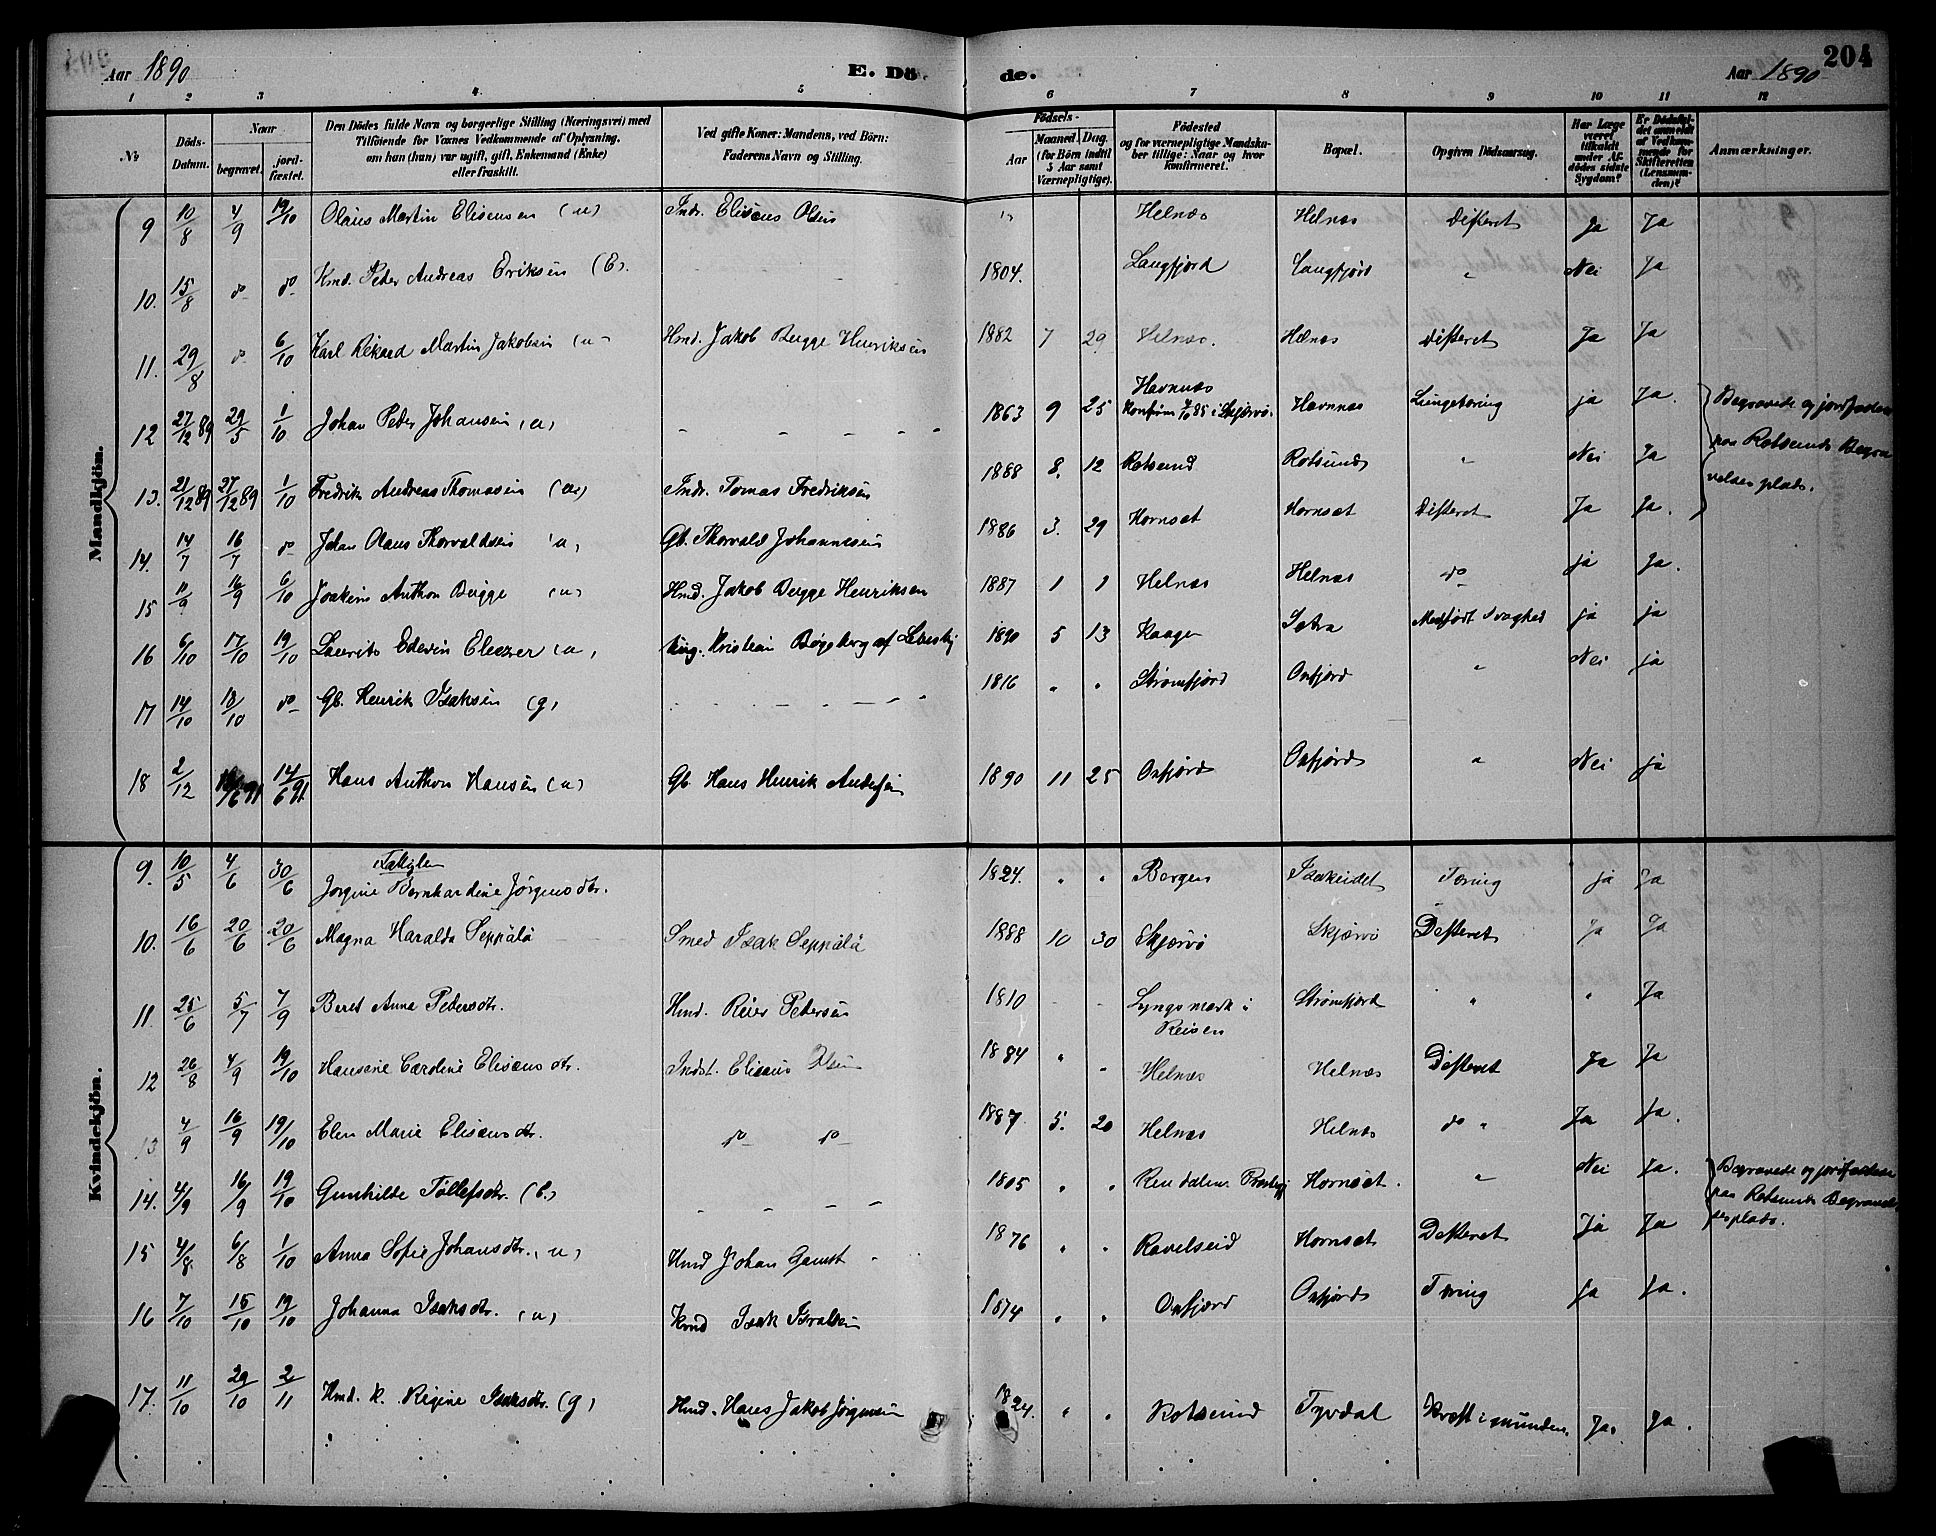 204
Aar 1890
E. Dö de.
Aar 1890
1 2 3 4 5 6 7 8 9 10 11 12
No
Döds-Datum.
Naar
begravet.
jord-fæstet.
Den Dödes fulde Navn og borgerlige Stilling (Næringsvei) med
Tilföiende for Voxnes Vedkommende af Oplysning,
om han (hun) var ugift, gift, Enkemand (Enke)
eller fraskilt.
Ved gifte Koner: Mandens, ved Börn:
Faderens Navn og Stilling.
Födsels-
Aar
Maaned. Dag.
(for Börn indtil
5 Aar samt
Værnepligtige).
Födested
og for værnepligtige Mandska-
ber tillige: Naar og hvor
konfirmeret.
Bopæl.
Opgiven Dödsaarsag.
Har Læge
været
tilkaldt
under Af-
dödes sidste
Sygdom?
Er Dödsfal-
det anmeldt
af Vedkom-
mende for
Skifteretten
(Lensman-
den)?
Anmærkninger.
Mandkjön.
9 10/8 4/9 19/10 Olaus Martin Eliseusen (u) Indr. Eliseus Olsen " Helnæs Helnæs Difteret Ja Ja
10. 15/8 do do Kmd. Peder Andreas Eriksen (E). 1804. Langfjord Langfjord " Nei Ja
11. 29/8 do 6/10 Karl Rikard Martin Jakobsen (u) Hmd. Jakob Bugge Henriksen 1882 7 29 Helnæs. Helnæs Difteret Ja Ja
12 27/12 89 29/5 1/10 Johan Peder Johansen (u) - - - - - 1863 9 25 Havnnæs Konfirm. 4/10 85 i Skjærvö. Havnnæs Lungetæring ja Ja. Begravede og jordfæstede
13. 21/12 89 27/12 89 1/10 Fredrik Andreas Thomasen (u) Indr. Tomas Fredriksen 1888 8. 12 Rotsund Rotsund " Nei Ja paa Rotsunds Begra
velses plads.
14. 14/7 16/7 do Johan Olaus Thorvaldsen (u) Gb. Thorvald Johannesen 1886 3. 29 Hornset Hornset Difteret Ja Ja.
15 11/9 16/9 6/10 Joakim Anthon Bugge (u) Hmd. Jakob Bugge Henriksen 1887 1 1 Helnæs Helnæs do ja Ja.
16 6/10 17/10 19/10 Laurits Edevin Eleezer (u) Ung. Kristian Bögeberg af 1890 5 13 Kaagen Sætra Medfödt Svaghed ja ja
17 14/10 18/10 do Gb. Henrik Isaksen (g) - - - - - 1816 " " Strömfjord Oxfjord " Nei ja
18 2/12 6 91 14/6 91 Hans Anthon Hansen (u) Gb. Hans Henrik Andersen 1890 11 25 Oxfjord Oxfjord " Nei ja
Kvindekjön.
9. 10/5 4/6 30/6 Jörgine Bernhardine Jörgensdtr. 1824. " " Bergen Isakeidet Tæring ja Ja
10. 16/6 20/6 20/6 Magna Haralda Seppälä Smed Isak Seppälä 1888 10 30 Skjærvö Skjærvö Difteret Ja Ja
11. 25/6 5/7 7/9 Beret Anna Pedersdtr. Hmd. Reier Pedersen 1810 - - Lyngsmark i Reisen Strömfjord " " Ja
12 26/8 4/9 19/10 Hansine Cardine Eliseusdtr. Indst. Eliseus Olsen 1884 " " Helnæs Helnæs Difteret Ja Ja
13 4/9 16/9 19/10 Elen Marie Eliseusdtr. do do 1887 5. 20 Helnæs Helnæs do " Ja Ja.
14. 4/9 16/9 19/10 Gunhilde Tollefsdtr. (E.) - - - - 1805 " " Rendalens Præstegj Hornset. " Nei Ja. Begravede og jordfæstede
paa Rotsunds Begravel-
ses plads.
15 4/8 6/8 1/10 Anna Sofie Johansdtr. (u) Hmd Johan Gamst 1876 " " Ravelseid Hornset Difteret Ja Ja
16 7/10 15/10 19/10 Johanna Isaksdtr. (u) Kmd Isak Israelsen 1874 " " Oxfjord Oxfjord Tæring Ja Ja.
17. 11/10 29/10 2/11 Hmd. k. Regine Isaksdtr. (g) Hmd. Hans Jakob Jörgensen 1824. " " Rotsund Tyvdal Kræft i munden. Ja. Ja.